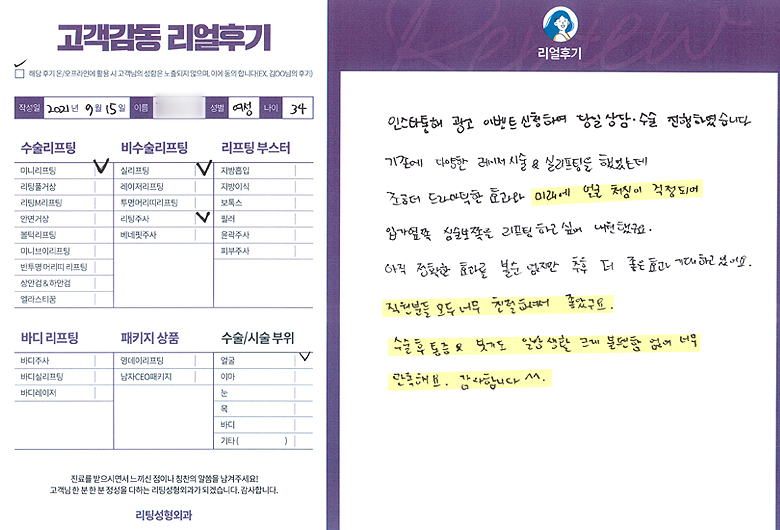 고객감동 리얼후기
해당 후기 온/오프라인에 활용 시 고객님의 성함은 노출되지 않으며, 이에 동의 합니다(EX. 김OO님의 후기)
작성일 2021년 9월 15일 이름 성별 여성 나이 34
수술리프팅
미니리프팅
리팅풀거상
리팅M리프팅
안면거상
볼턱리프팅
미니브이리프팅
반투명 머리띠 리프팅
상안검 & 하안검
엘라스티꿈
비수술리프팅
실리프팅
레이저리프팅
투명머리띠리프팅
리팅주사
베네핏주사
리프팅 부스터
지방흡입
지방이식
보톡스
필러
윤곽주사
피부주사
바디 리프팅
바디주사
바디실리프팅
바디레이저
패키지 상품
명데이리프팅
남자CEO패키지
수술/시술 부위
얼굴
이마
눈
목
바디
기타 ( )
진료를 받으시면서 느끼신 점이나 칭찬의 말씀을 남겨주세요!
고객님 한 분 한 분 정성을 다하는 리팅성형외과가 되겠습니다. 감사합니다.
리팅성형외과
Review
리얼후기
인스타통해 광고 이벤트 신청하여 당일 상담·수술 진행하였습니다
기존에 다양한 레이저 시술 & 실리프팅을 했었는데
조금더 드라마틱한 효과와 미래에 얼굴 처짐이 걱정되어
입가옆쪽 심술보쪽을 리프팅 하고 싶어 내원했구요.
아직 정확한 효과를 볼순 없지만 추후 더 좋은효과 기대하고 있어요.
직원분들 모두 너무 친절하셔서 좋았구요.
수술후 통증 & 붓기도 일상생활 크게 불편함 없어 너무
만족해요. 감사합니다 ^^.